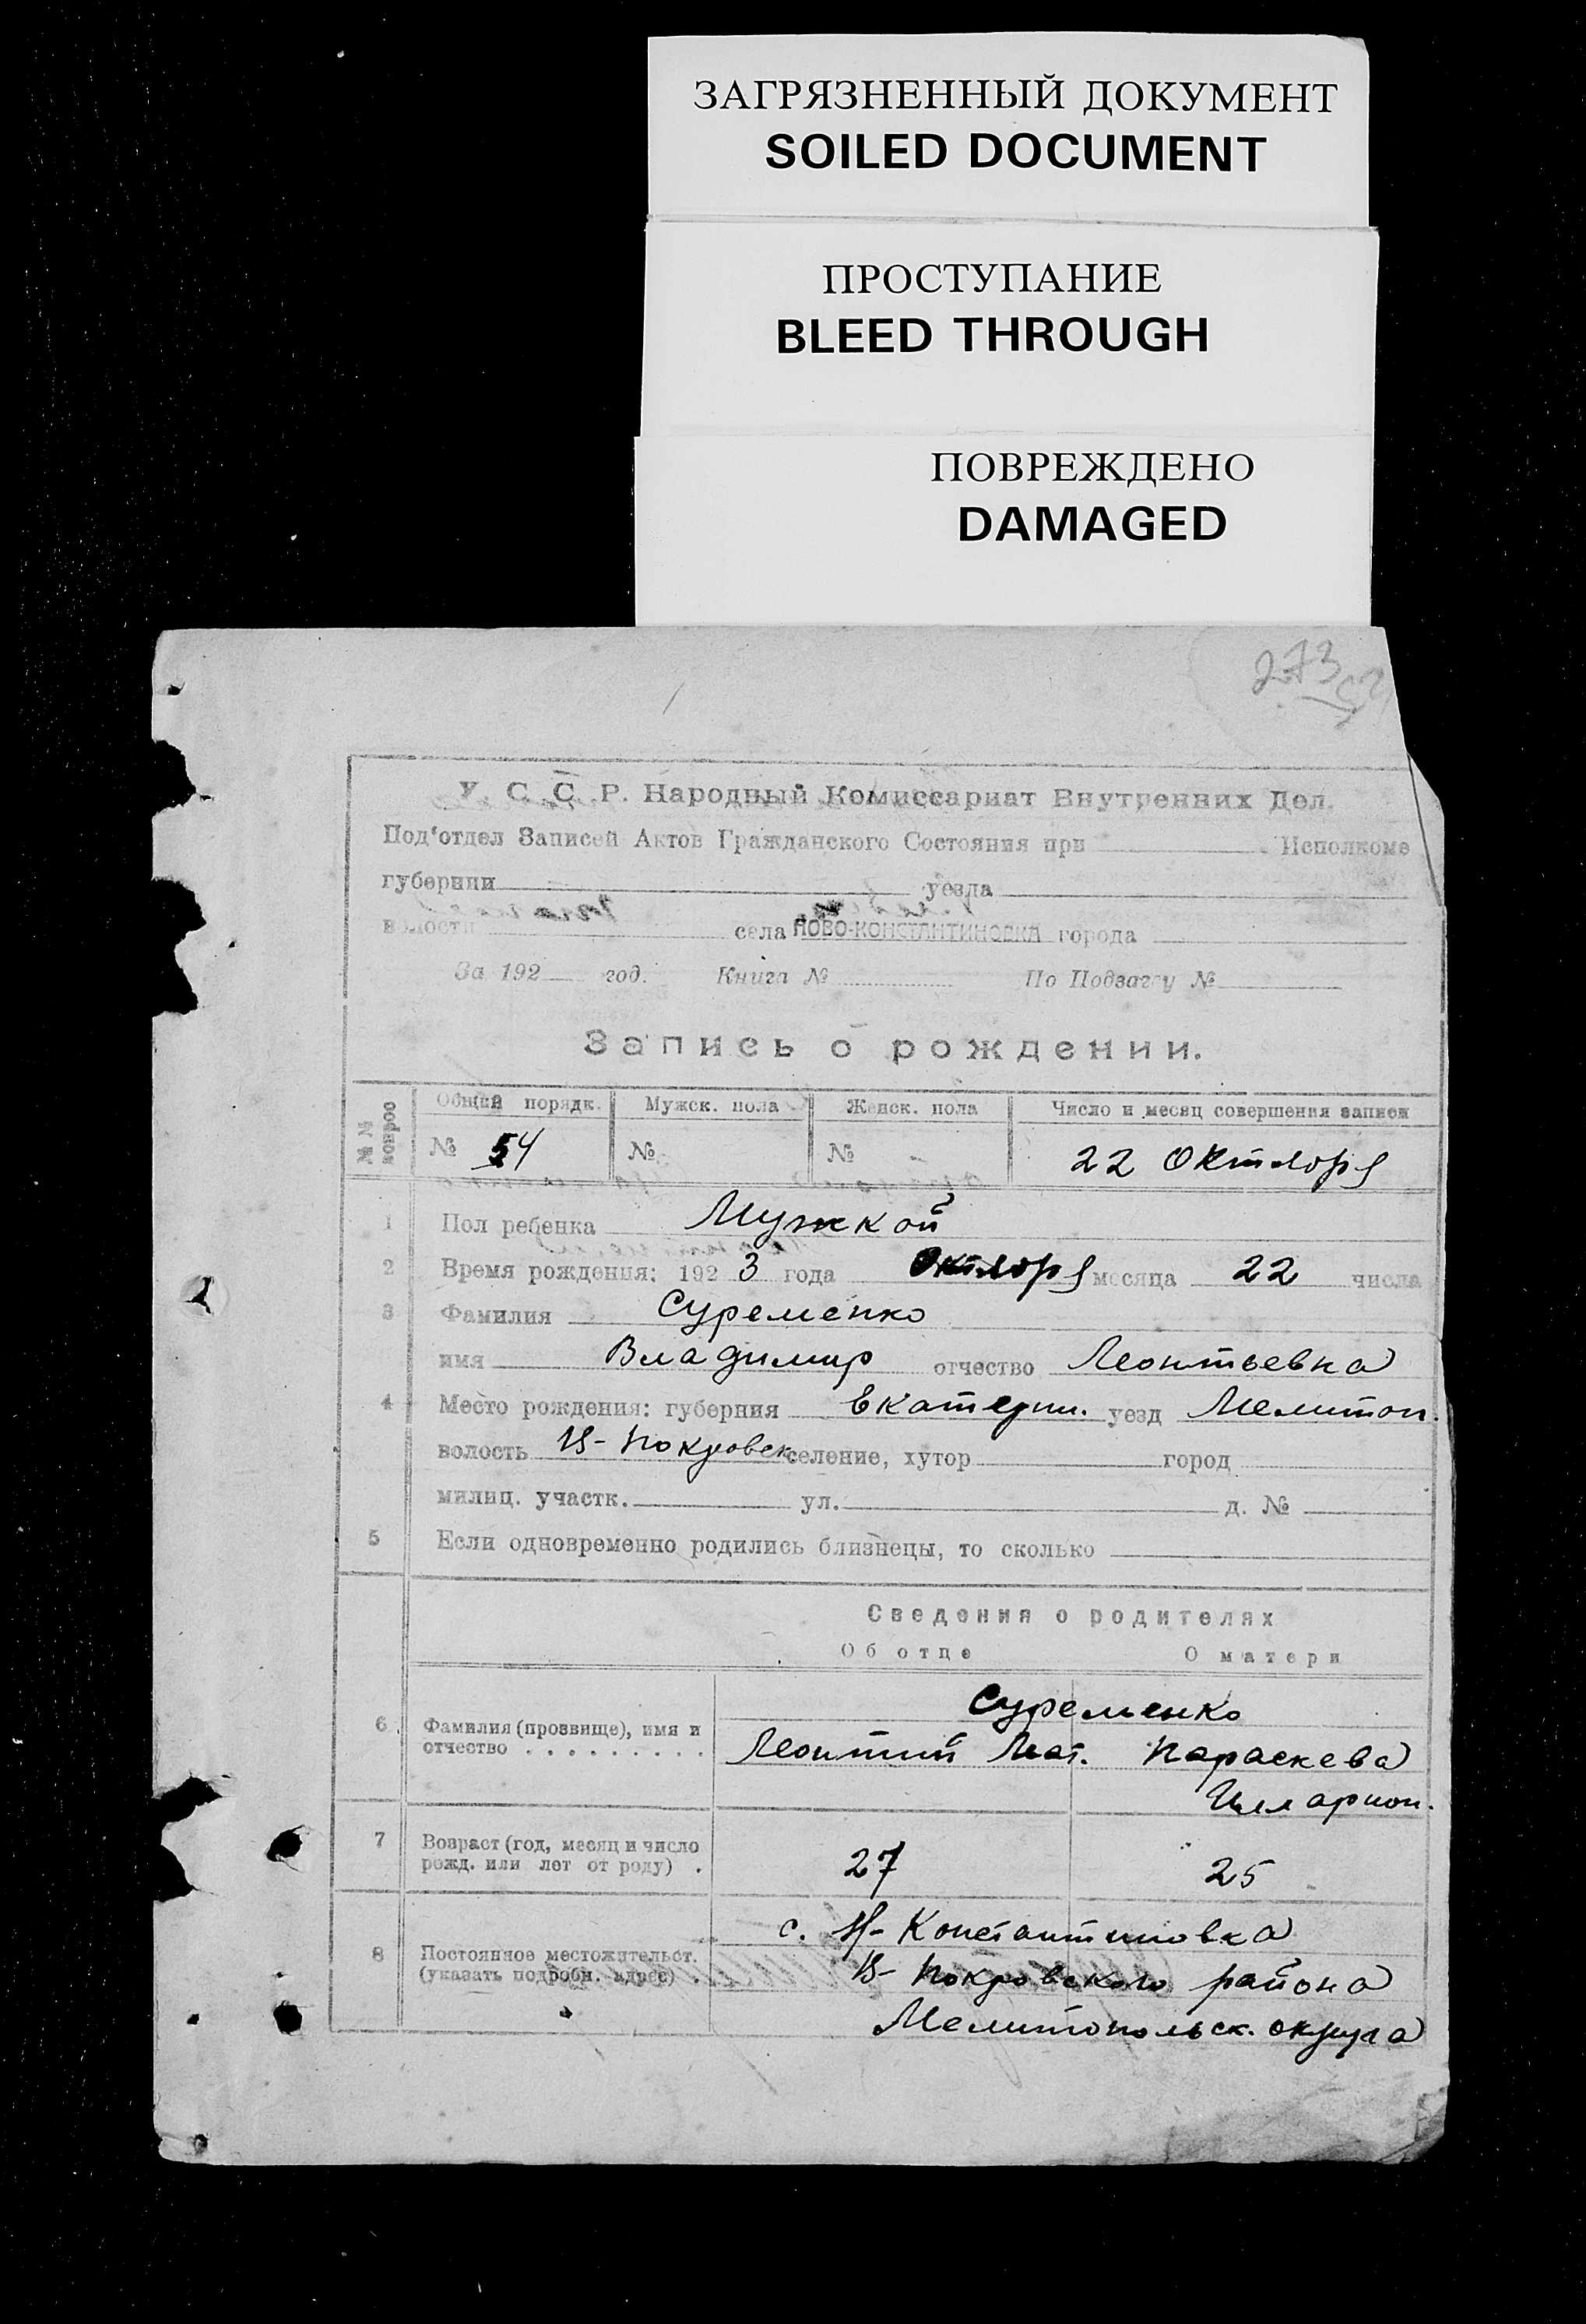 ЗАГРЯЗНЕННЫЙ ДОКУМЕНТ
SOILED DOCUMENT
ПРОСТУПАНИЕ
BLEED THROUGH
ПОВРЕЖДЕНО
DAMAGED
273
У. С. С. Р. Народный Комиссариат Внутренних Дел.
Под'отдел Записей Актов Гражданского Состояния при Исполкоме
губернии уезда
волости села НОВО-КОНСТАНТИНОВКА города
За 192 год. Книга № По Подзагсу №
Запись о рождении.
№№ вопросо Общий порядк. Мужск. пола Женск. пола Число и месяц совершения записи
№ 54 № № 22 Октября
1 Пол ребенка Мужской
2 Время рождения: 192 3 года Октября месяца 22 числа
3 Фамилия Суременко
имя Владимир отчество Леонтьевна
4 Место рождения: губерния Екатерин. уезд Мелитоп.
волость В-Покровск. селение, хутор город
милиц. участк. ул. д. №
5 Если одновременно родились близнецы, то сколько
Сведения о родителях
Об отце О матери
Суременко
6 Фамилия (прозвище), имя и отчество Леонтий Мат. Параскева
Илларион.
7 Возраст (год, месяц и число
рожд. или лет от роду) . 27 25
с. Н-Константиновка
8 Постоянное местожительст.
(указать подробн. адрес) В-Покровского района
Мелитопольск. округа